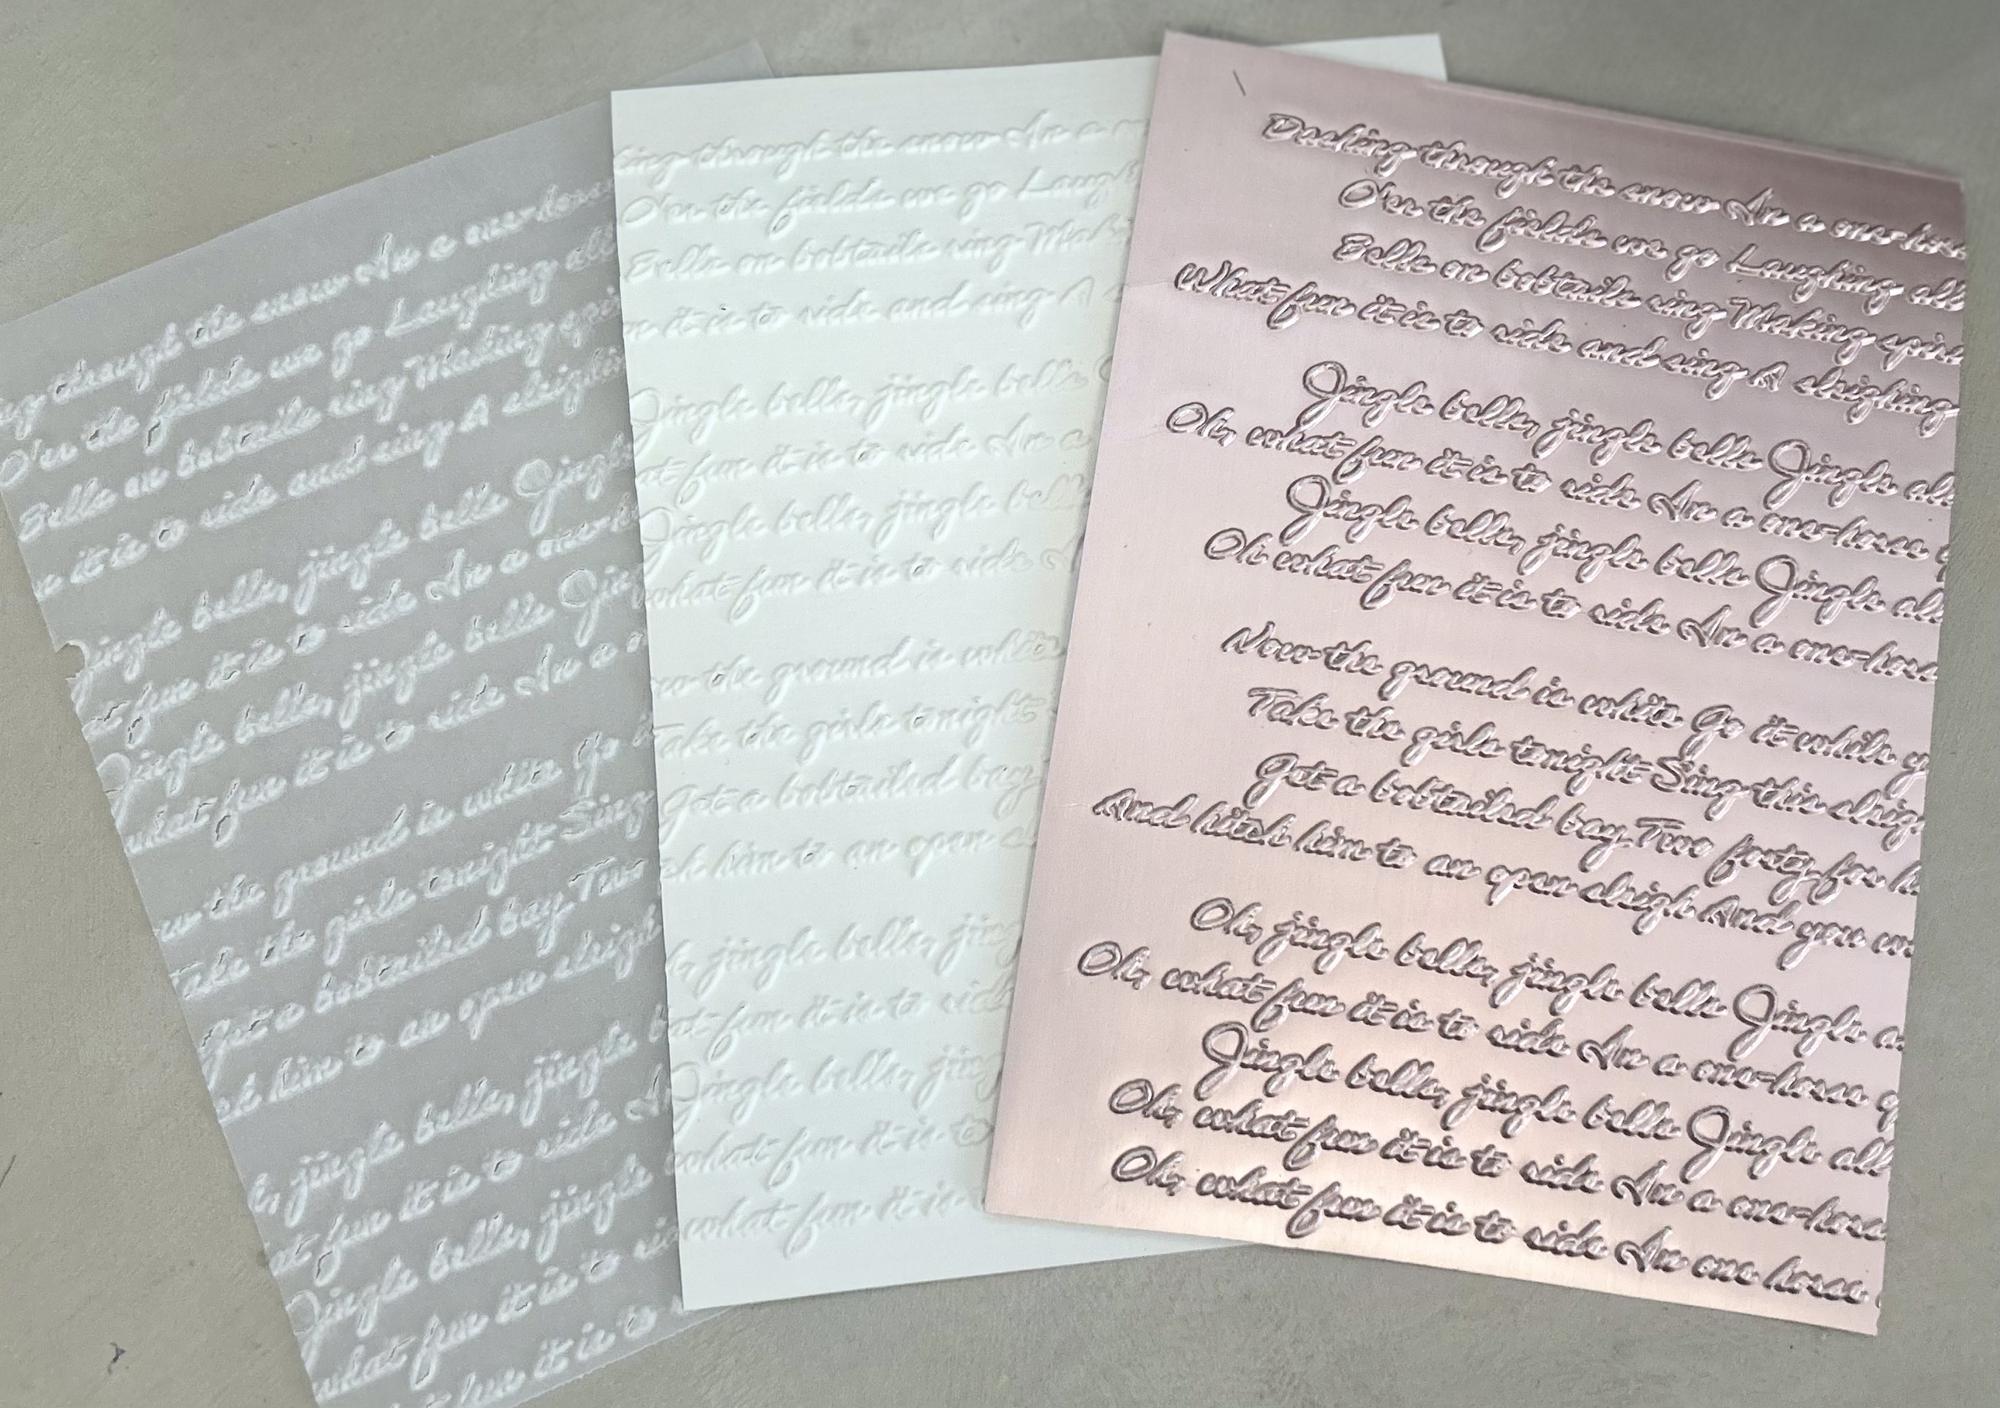 through the snow In a one-horse
O'er the fields we go Laughing all
Bells on bobtails ring Making spiri
it is to ride and sing A sleighin
Jingle bells, jingle bells Jingle
at fun it is to ride In a one-h
Jingle bells, jingle bells Jin
what fun it is to ride In a
ow the ground is white Go it
Take the girls tonight Sing
Get a bobtailed bay Two
ch him to an open sleigh
h, jingle bells, jingle b
at fun it is to ride
Jingle bells, jingle
what fun it is to ri
fun it is to
ing through the snow In a
O'er the fields we go Laugh
Bells on bobtails ring Maki
n it is to ride and sing A
Jingle bells, jingle bells
at fun it is to ride In a
Jingle bells, jingle bells
what fun it is to ride
ow the ground is white
Take the girls tonight
Get a bobtailed bay
ch him to an open
h, jingle bells, jin
at fun it is to rid
Jingle bells, jing
what fun it is to
what fun it is
Dashing through the snow In a one-horse
O'er the fields we go Laughing all
Bells on bobtails ring Making spiri
What fun it is to ride and sing A sleighing
Jingle bells, jingle bells Jingle all
Oh, what fun it is to ride In a one-horse
Jingle bells, jingle bells Jingle all
Oh what fun it is to ride In a one-hors
Now the ground is white Go it while y
Take the girls tonight Sing this sleig
Get a bobtailed bay Two forty for h
And hitch him to an open sleigh And you w
Oh, jingle bells, jingle bells Jingle a
Oh, what fun it is to ride In a one-horse
Jingle bells, jingle bells Jingle all
Oh, what fun it is to ride In a one-horse
Oh, what fun it is to ride In one horse